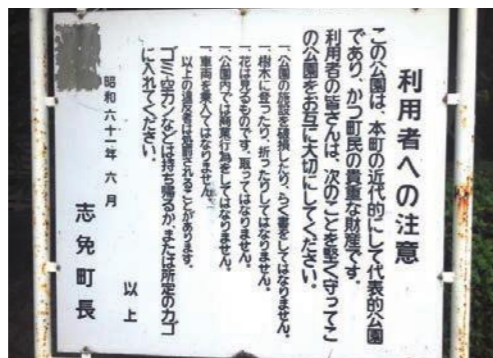 利用者への注意
この公園は、本町の近代的にして代表的公園
であり、かつ町民の貴重な財産です。
利用者の皆さんは、次のことを堅く守ってこ
の公園をお互に大切にしてください。
一、公園の施設を破損したり、らく書をしてはなりません。
一、樹木に登ったり、折ったりしてはなりません。
一、花は見るものです。取ってはなりません。
一、公園内では商業行為をしてはなりません。
一、車両を乗入てはなりません。
以上の違反者は処罰されることがあります。
ゴミ・空カンなどは持ち帰るか、または所定のカゴ
に入れてください。
以上
昭和六十一年六月
志免町長